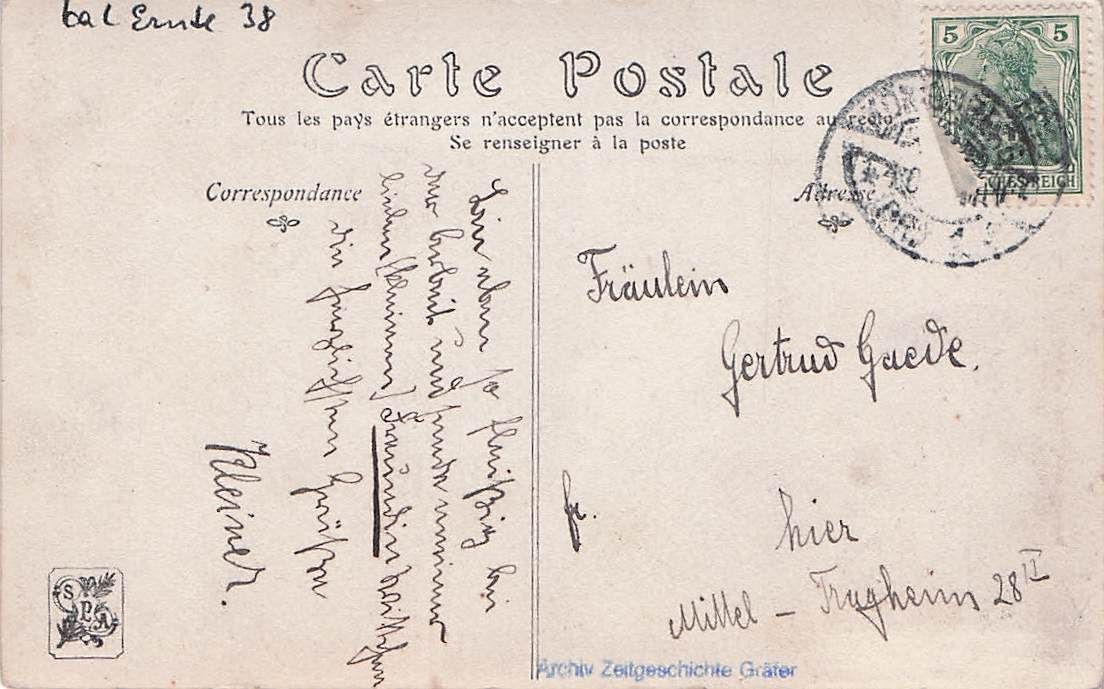 bal Ernte 38
Carte Postale
Tous les pays étrangers n'acceptent pas la correspondance au recto
Se renseigner à la poste
Correspondance
Adresse
5 5
REICH
Bin eben so fleißig bei
der Arbeit und sende meiner
lieben kleinen Freundin
die herzlichsten Grüßen
Kleiner.
Fräulein
Gertrud Gaede.
fr.
hier
Mittel - Tragheim 28 II
SPA
Archiv Zeitgeschichte Gräfer